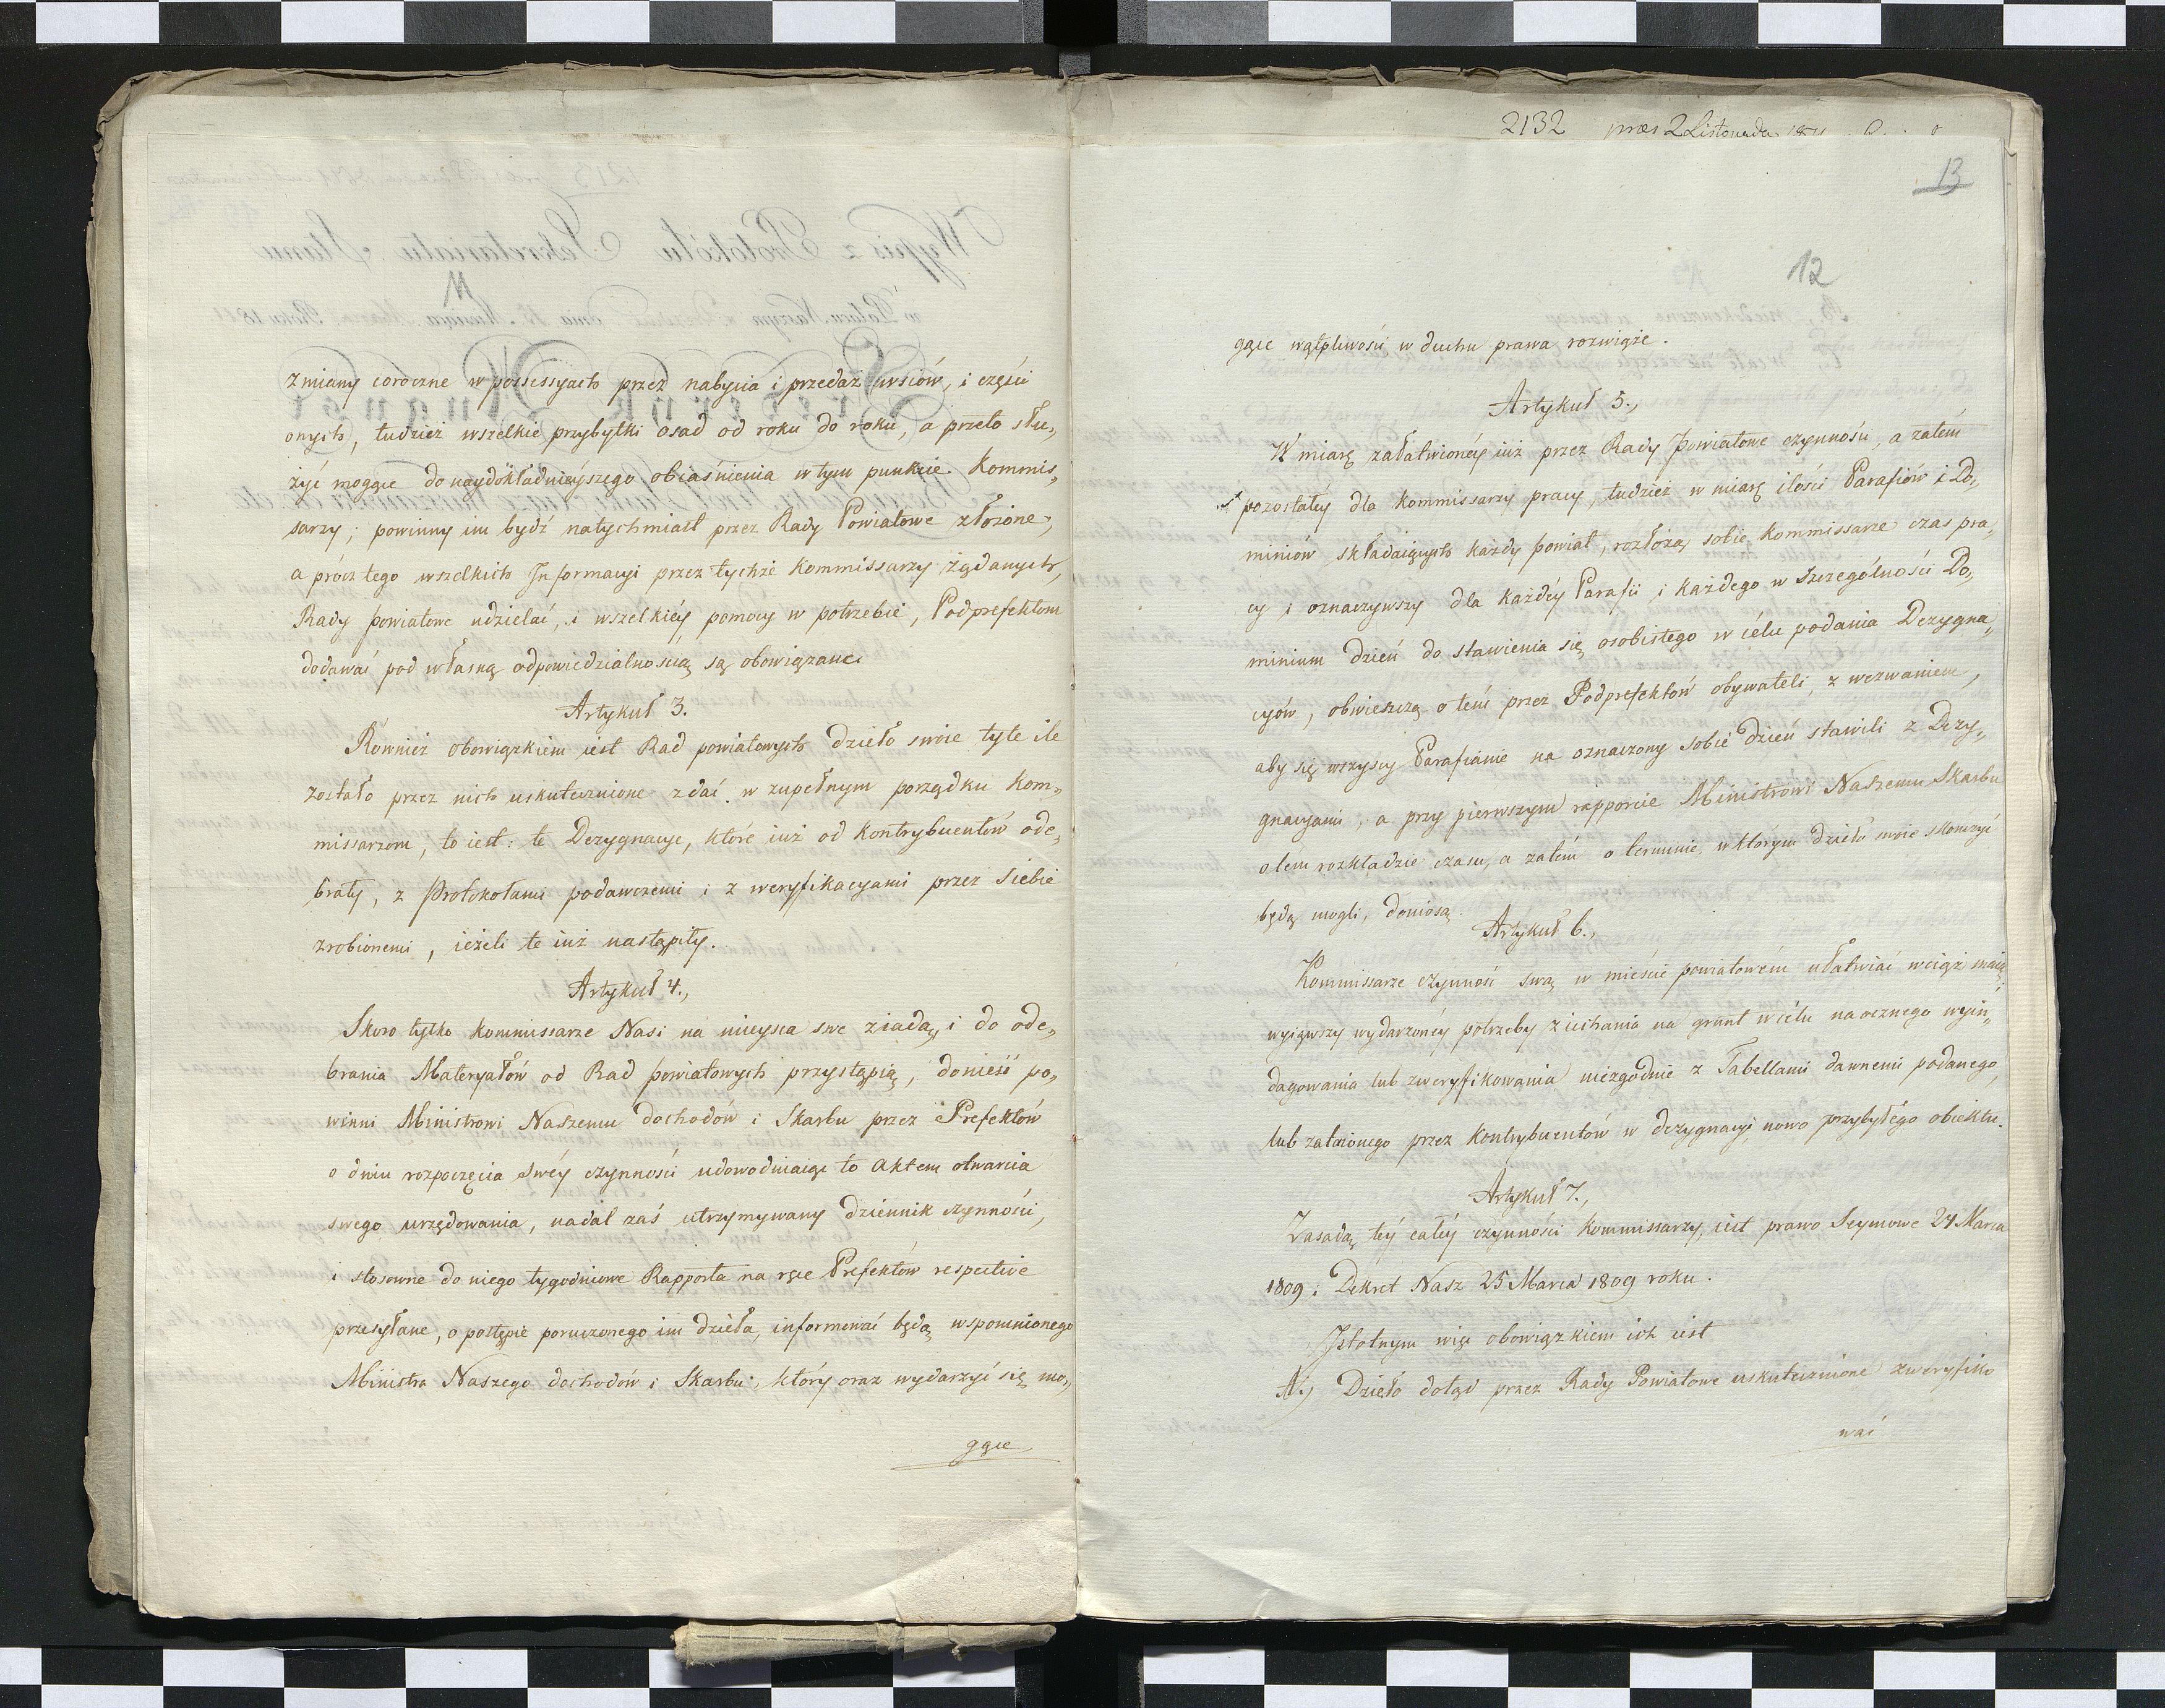 zmiany coroczne w possessyach przez nabycia i przedaż wsiów, i części
onych, tudzież wszelkie przybytki osad od roku do roku, a przeto słu„
żyć mogące do naydokładnieyszego obiaśnienia w tym punkcie. Kommis„
sarzy; powinny im bydź natychmiast przez Rady Powiatowe złożone,
a prócz tego wszelkich Informacyi przez tychże Kommissarzy żądanych,
Rady powiatowe udzielać, i wszelkiéy pomocy w potrzebie, Podprefektom
dodawać pod własną odpowiedzialnoscią są obowiązane.
Artykuł 3.
Również obowiązkiem iest Rad powiatowych dzieło swoie tyle ile
zostało przez nich uskutecznione zdać w zupełnym porządku Kom„
missarzom, to iest: te Dezygnacye, które iuż od kontrybuentów ode„
brały, z Protokołami podawczemi i z weryfikacyami przez siebie
zrobionemi, ieżeli te iuż nastąpiły.
Artykuł 4.,
Skoro tylko kommissarze Nasi na mieysca swe ziadą, i do ode„
brania Materyałów od Rad powiatowych przystąpią, donieść po„
winni Ministrowi Naszemu dochodów i Skarbu przez Prefektów
o dniu rozpoczęcia swéy czynności udowodniaiąc to Aktem otwarcia
swego urzędowania, nadal zaś utrzymywany dziennik czynności,
i stosowne do niego tygodniowe Rapporta na ręce Prefektów respective
przesyłane, o postępie poruczonego im dzieła, informować będą wspomnionego
Ministra Naszego dochodów i Skarbu, który oraz wydarzyć się mo„
gące
2132 pres 2 Listopada 1811
13
12
gące wątpliwości w duchu prawa rozwiąże.
Artykuł 5.,
W miarę załatwionéy iuż przez Rady Powiatowe czynności, a zatém
pozostałéy dla kommissarzy pracy, tudzież w miarę ilości Parafiów i Do„
miniów składaiących każdy powiat, rozłożą sobie Kommissarze czas pra„
cy i oznaczywszy dla każdéy Parafii i każdego w szczególności Do„
minium dzień do stawienia się osobistego w célu podania Dezygna„
cyów, obwieszczą o tém przez Podprefektów obywateli, z wezwaniem,
aby się wszyscy Parafianie na oznaczony sobie dzień stawili z Dezy„
gnacyami, a przy pierwszym rapporcie Ministrowi Naszemu Skarbu
o tem rozkładzie czasu, a zatém o terminie, w którym dzieło swoie skończyć
będą mogli, doniosą.
Artykuł 6.,
Kommissarze czynność swą w mieście powiatowém ułatwiać wciąż maią
wyiąwszy wydarzonéy potrzeby ziechania na grunt w célu naocznego wyin„
dagowania lub zweryfikowania niezgodnie z Tabellami dawnemi podanego,
lub zataionego przez kontrybuentów w dezygnacyi nowo przybyłego obiektu.
Artykuł 7.,
Zasadą téy całéy czynności kommissarzy, iest prawo Seymowe 24 Marca
1809 i Dekret Nasz 25 Marca 1809 roku.
Istotnym więc obowiązkiem ich iest
A.) Dzieło dotąd przez Rady Powiatowe uskutecznione zweryfiko
wać